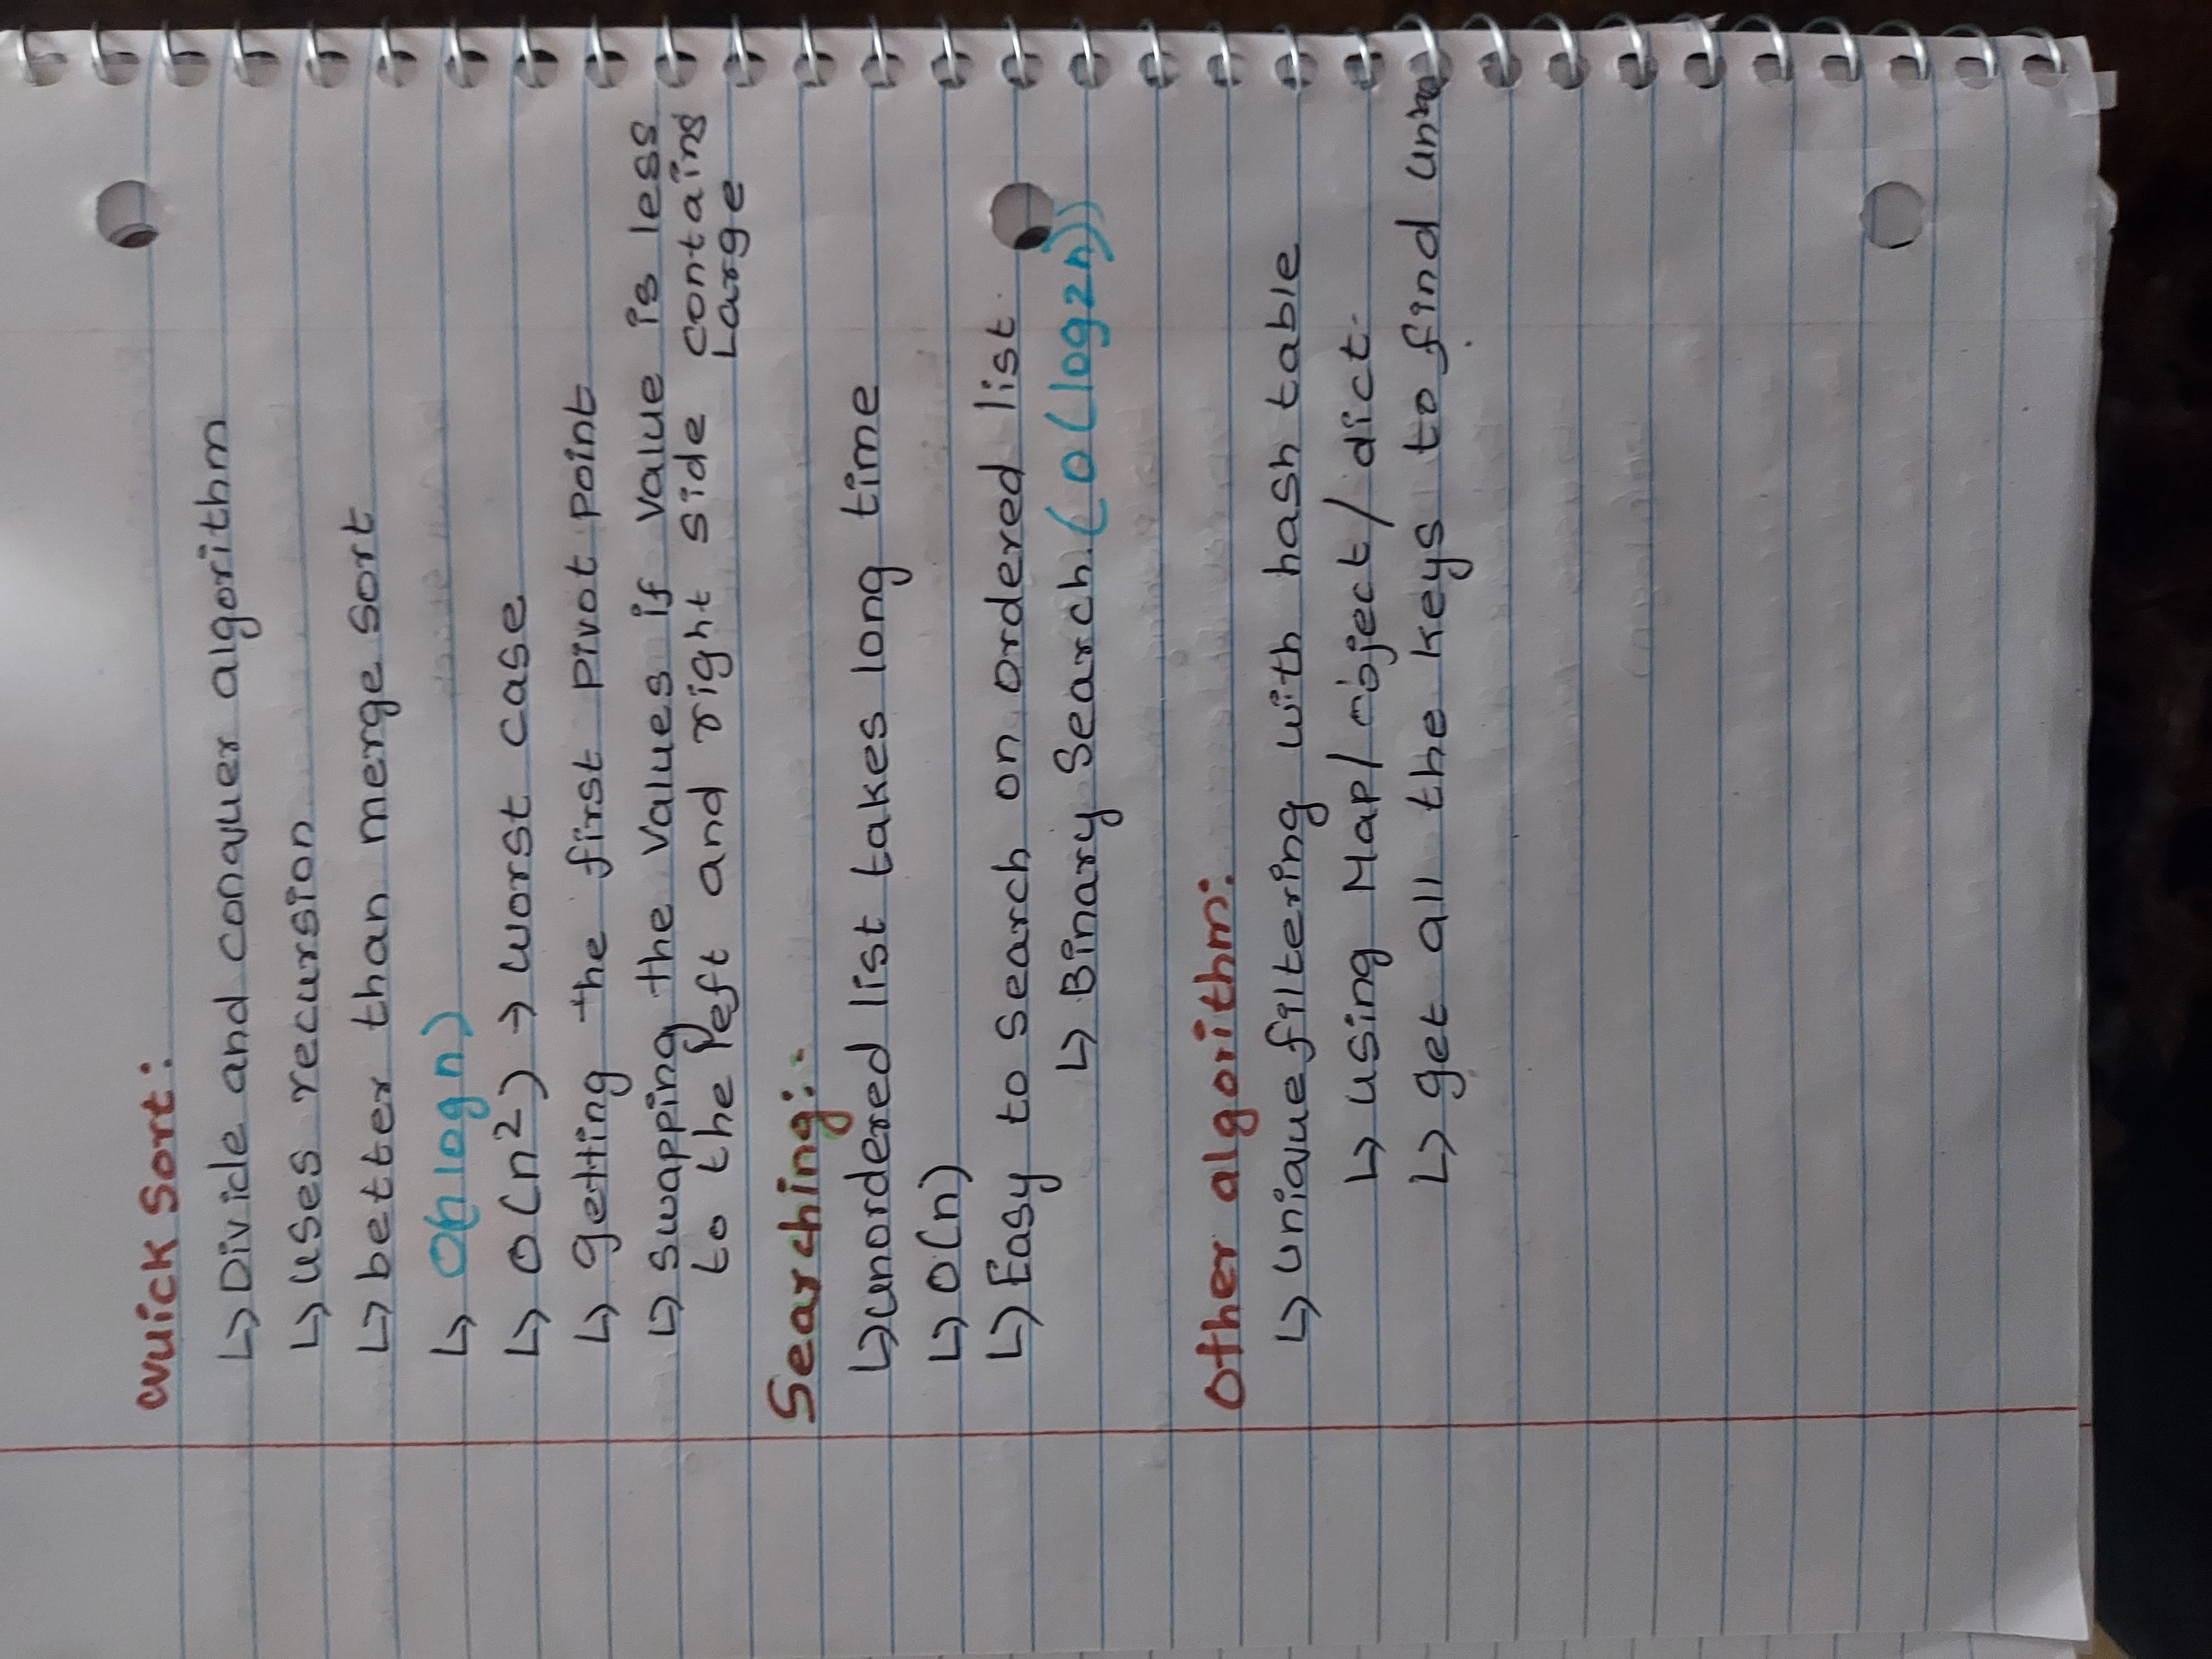 Quick Sort:
↳ Divide and conquer algorithm
↳ uses recursion
↳ better than merge sort
↳ O(n log n)
↳ O(n²) → worst case
↳ getting the first pivot point
↳ swapping the values if value is less
to the left and right side contains
Large
Searching:-
↳ unordered list takes long time
↳ O(n)
↳ Easy to search on ordered list
↳ Binary Search. (O(log2n))
Other algorithm:
↳ unique filtering with hash table
↳ using Map/object/dict.
↳ get all the keys to find